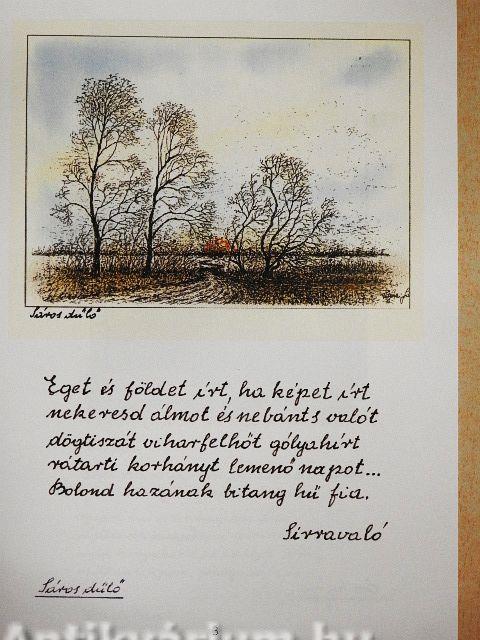 Sáros dűlő
Eget és földet írt, ha képet írt
nekeresd álmot és nebánts valót
dögtiszát viharfelhőt gólyahírt
rátarti korhányt lemenő napot...
Bolond hazának bitang hű fia.
Sírravaló
Sáros dűlő
3
Antikvárium.hu